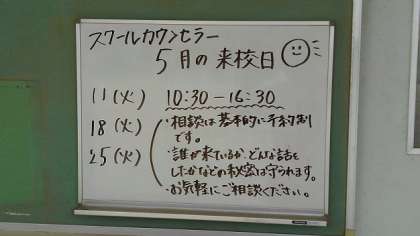 スクールカウンセラー
5月の来校日
11(火) 10:30-16:30
18(火)
25(火)
・相談は基本的に予約制
です。
・誰が来ているか、どんな話を
したかなどの秘密は守られます。
・お気軽にご相談ください。